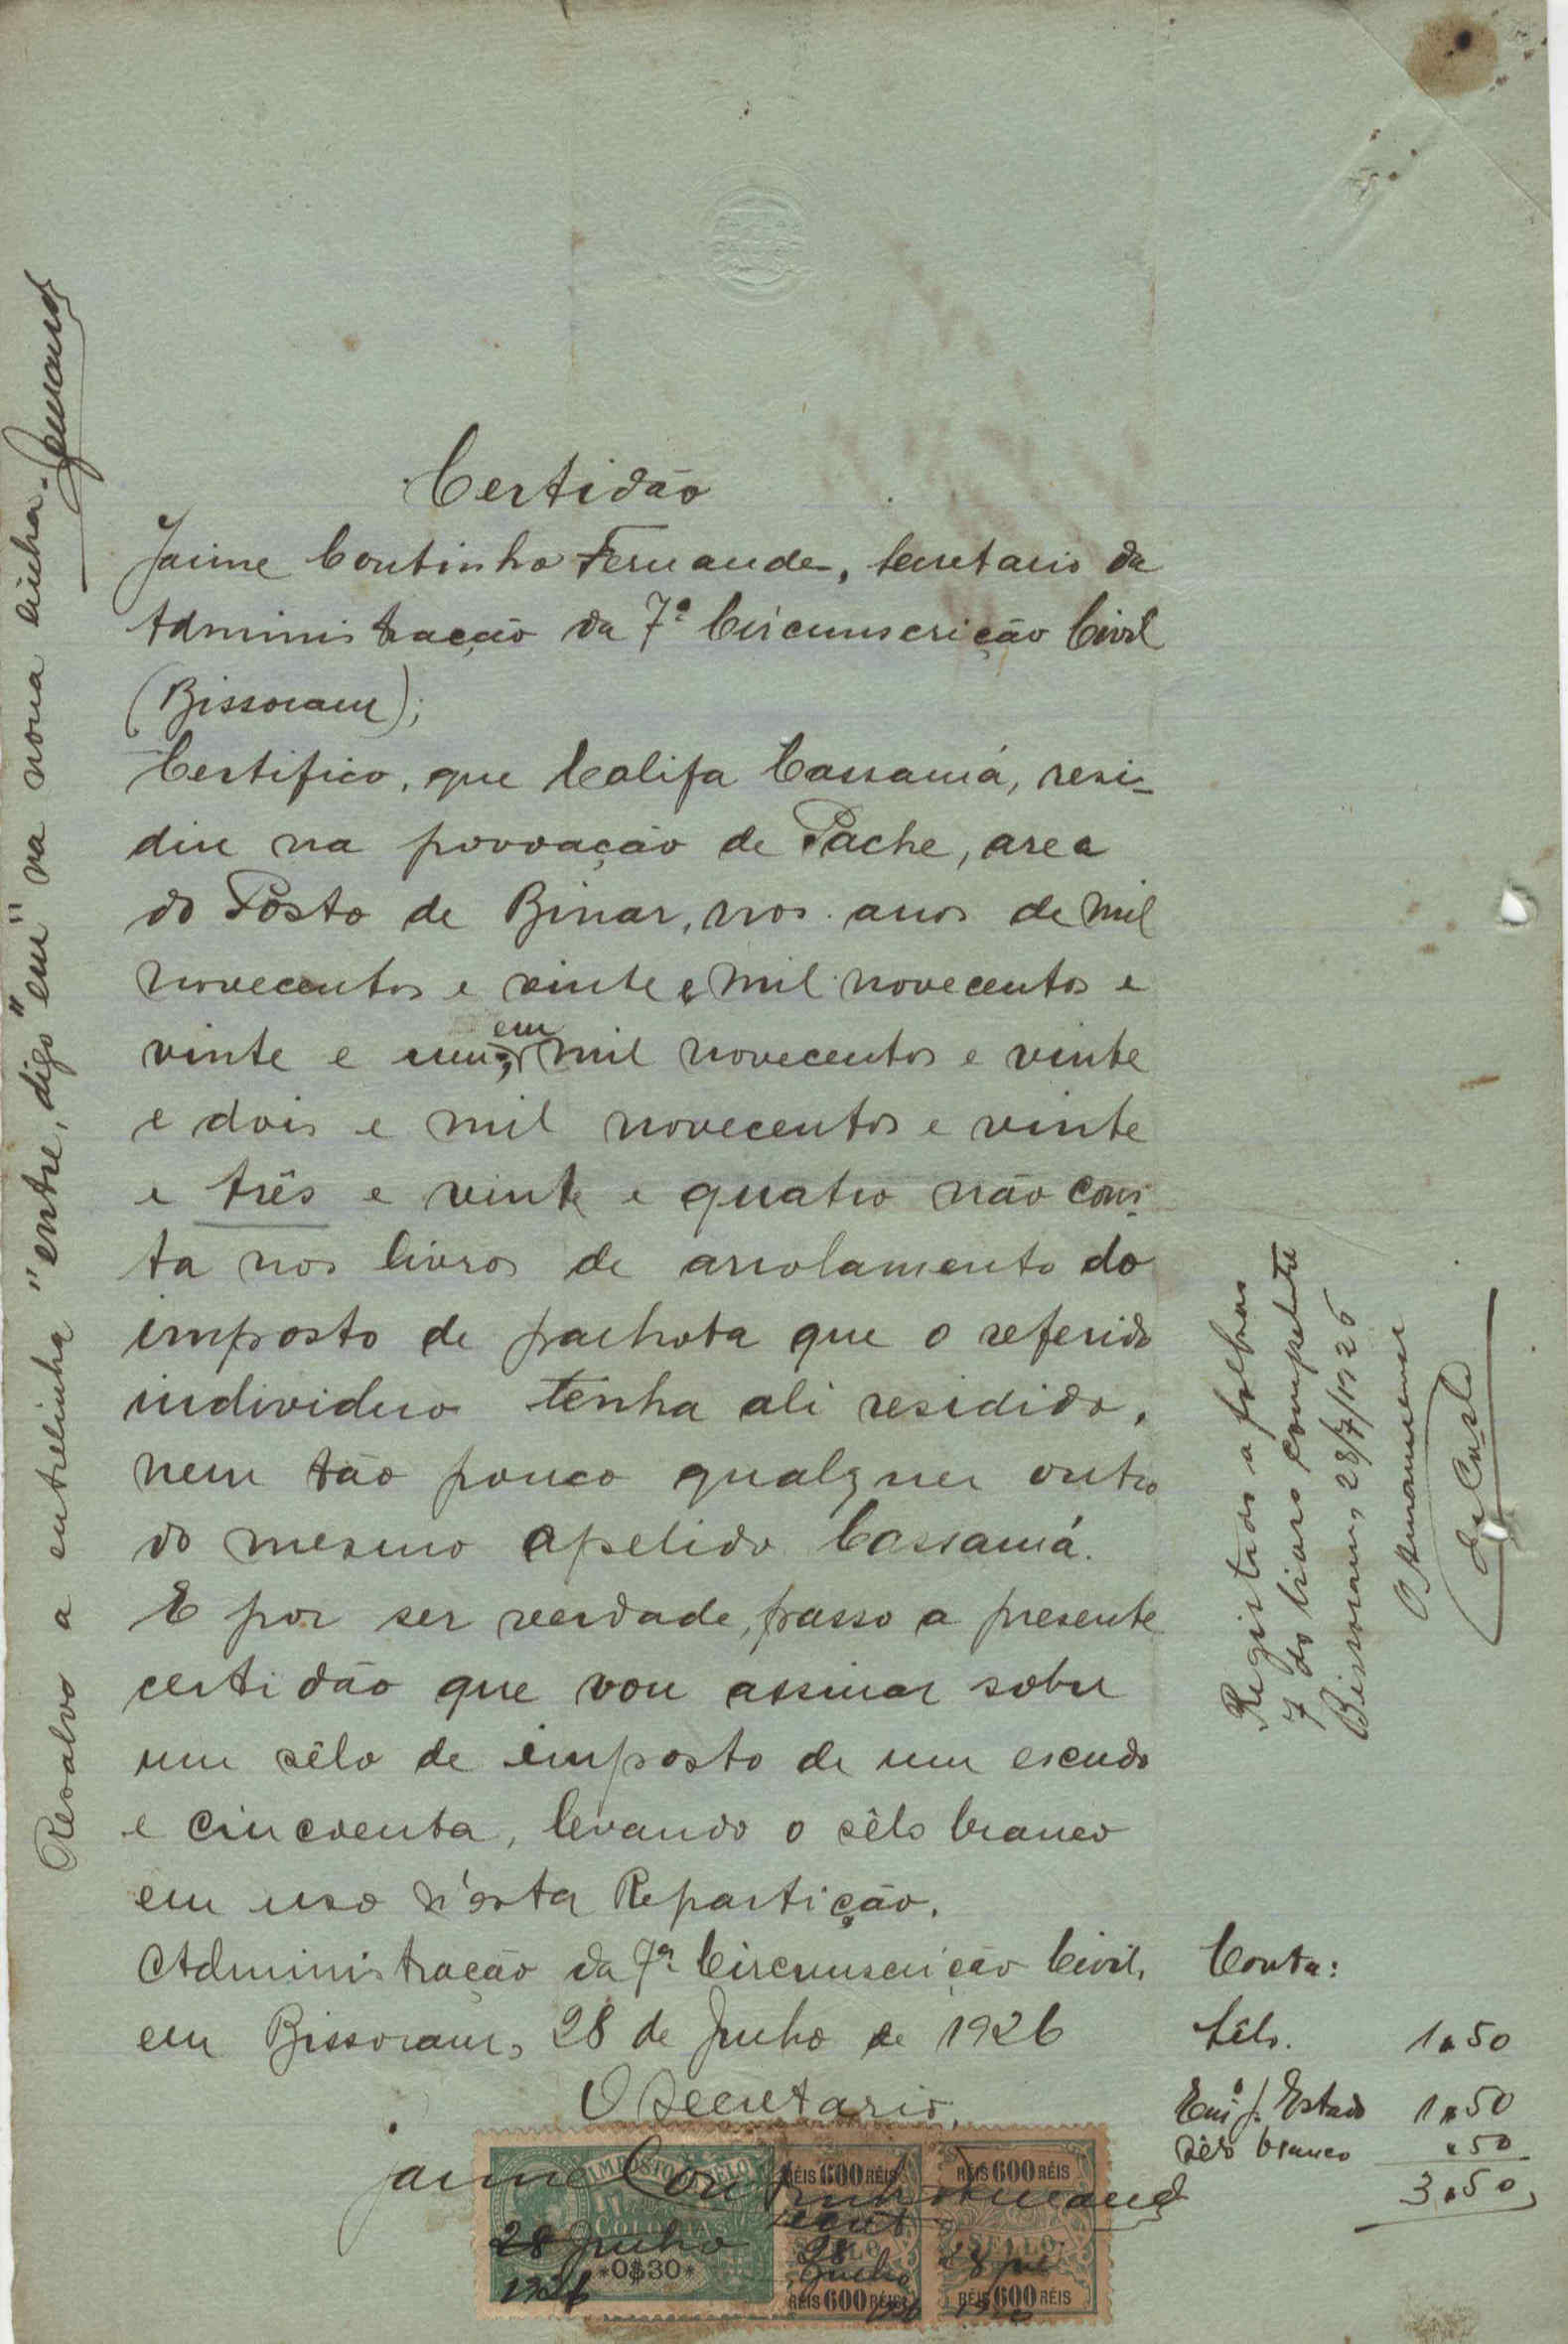 Certidão
Jaime Coutinho Fernandes, Secretario da
Administração da 7ª Circunscrição Civil
(Bissoram);
Certifico, que Califa Cassamá, resi-
diu na povoação de Pache, area
do Posto de Binar, nos anos de mil
novecentos e vinte e mil novecentos e
vinte e um, em mil novecentos e vinte
e dois e mil novecentos e vinte
e três e vinte e quatro não cons-
ta nos livros de arrolamento do
imposto de palhota que o referido
individuo tenha ali residido,
nem tão pouco qualquer outro
do mesmo apelido Cassamá.
E por ser verdade, passo a presente
certidão que vou assinar sobre
um sêlo de imposto de um escudo
e cincoenta, levando o sêlo branco
em uso n'esta Repartição.
Administração da 7ª Circunscrição Civil,
em Bissoram, 28 de Junho de 1926
O Secretario,
Jaime Coutinho Fernandes
IMPOSTO DO SELO
COLONIAS
*0$30*
28 Junho
1926
RÉIS 600 RÉIS
SELLO
28
Junho
RÉIS 600 RÉIS
RÉIS 600 RÉIS
SELLO
RÉIS 600 RÉIS
Resalvo a entrelinha "entre, digo "em" na nona linha.
Registado a folhas
7 do livro competente
Bissoram, 28/7/1926
O Amanuense
Conta:
Sêlo. 1$50
Em. p. Estado 1$50
Sêlo branco $50
3$50